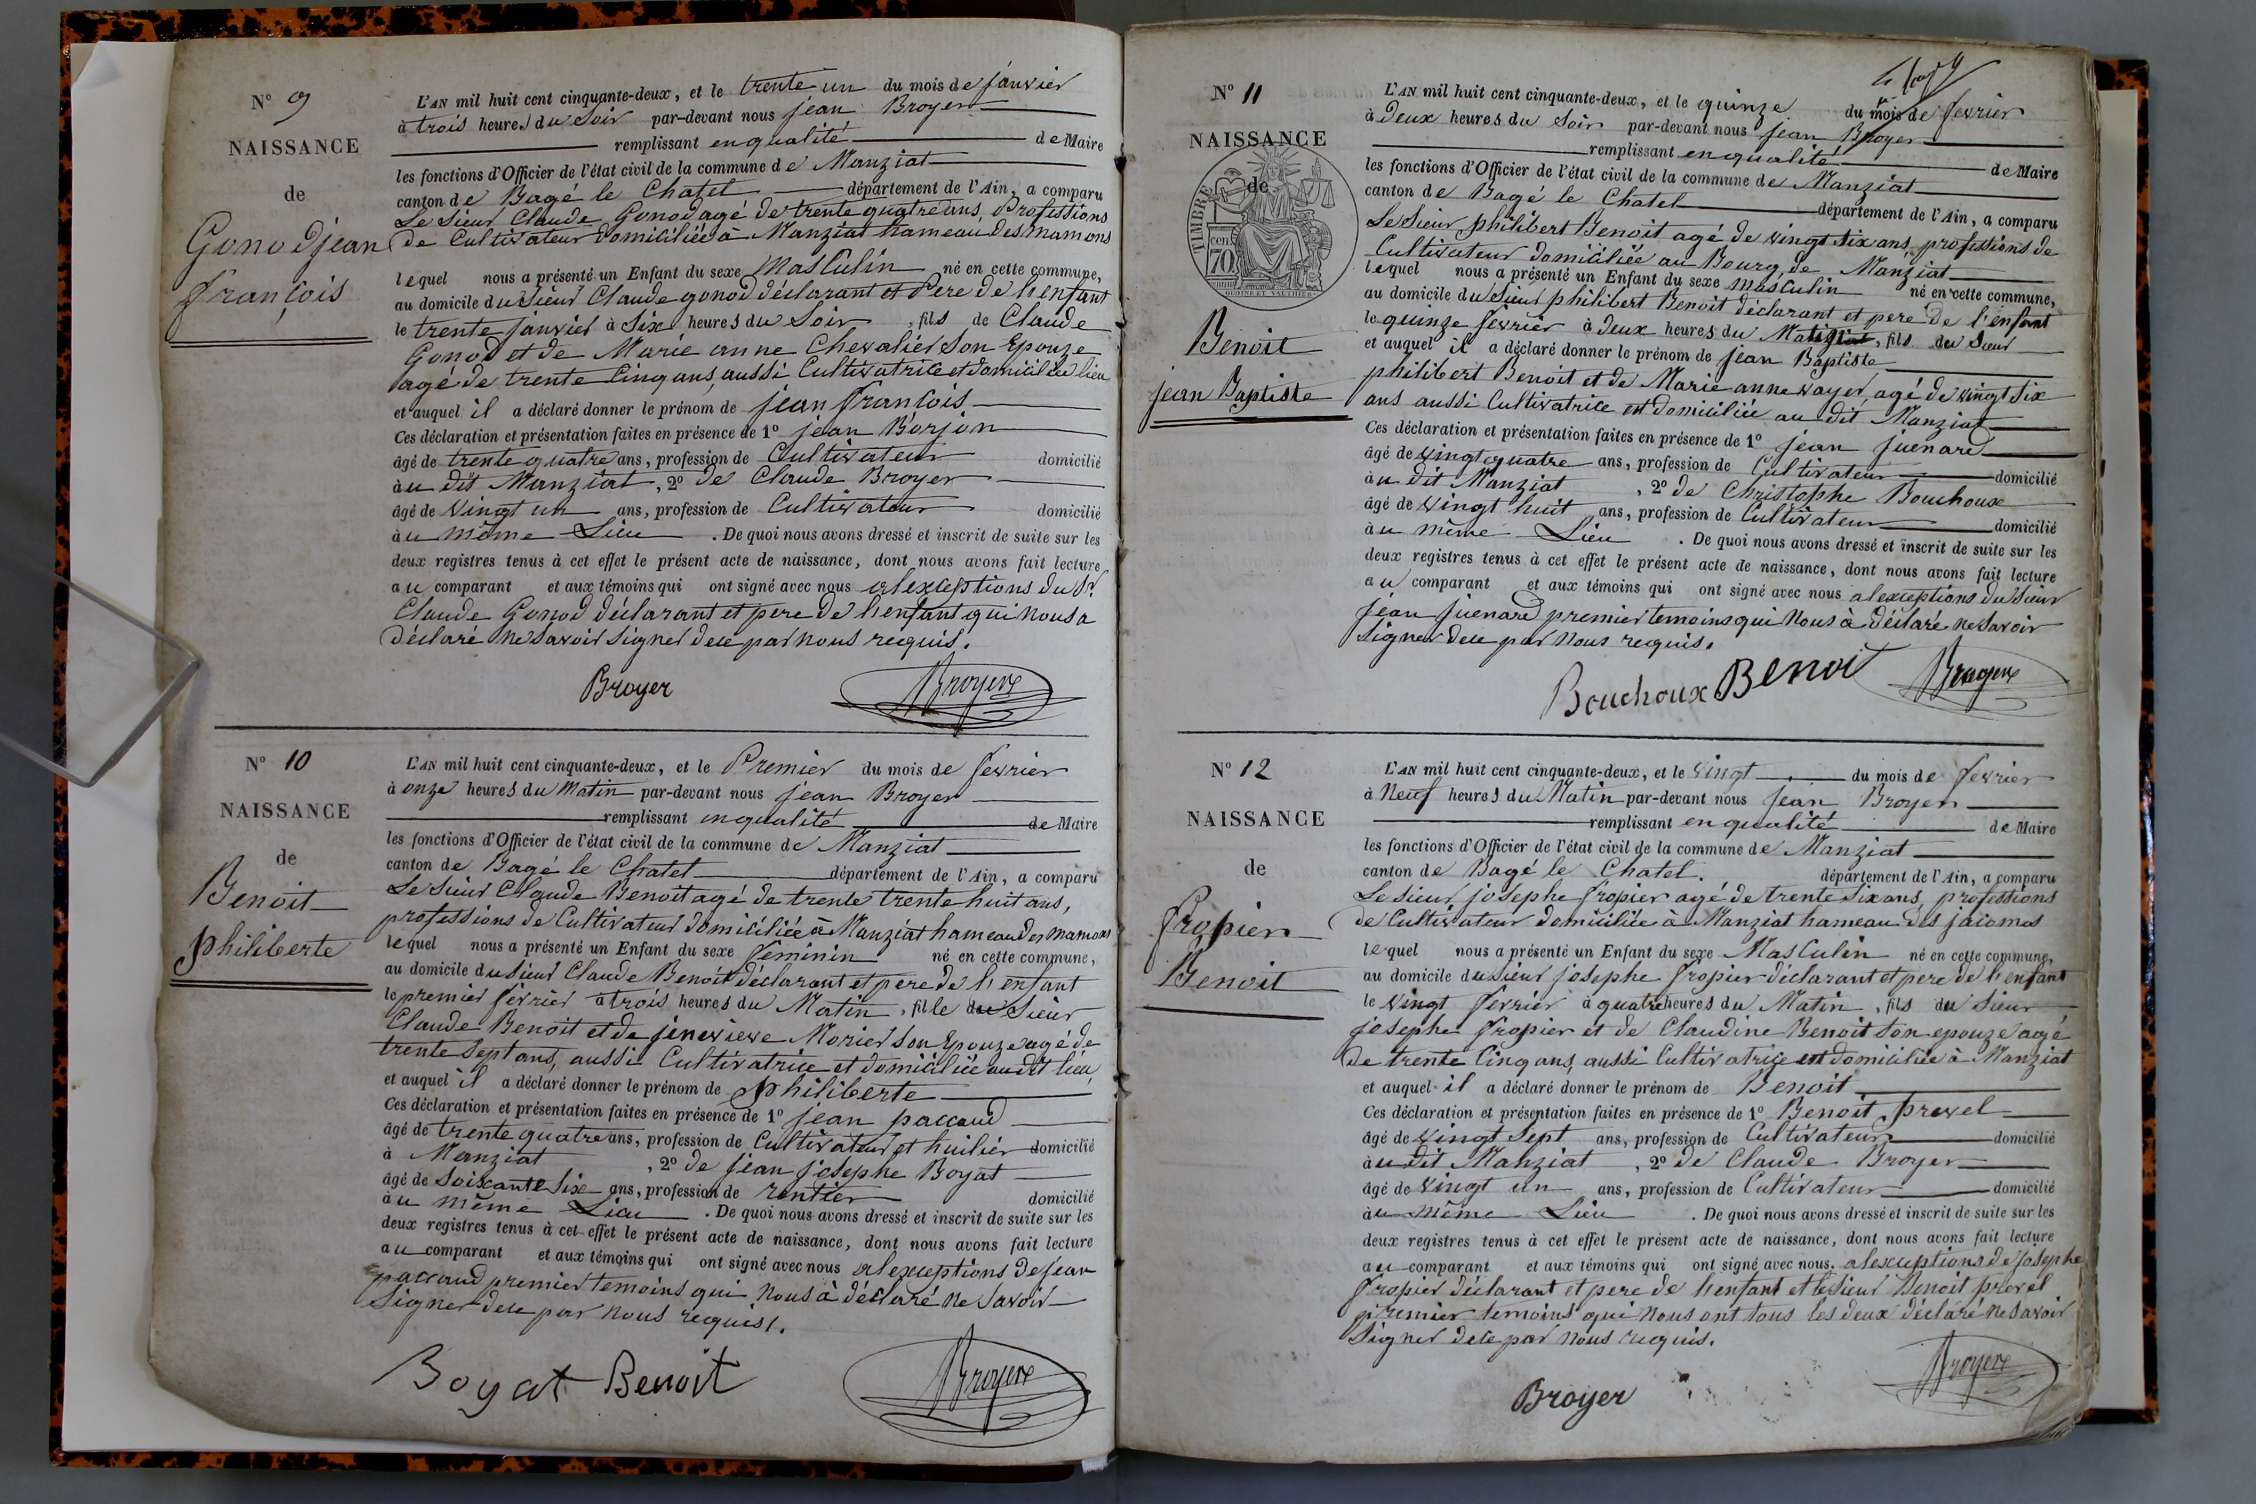 N° 9
NAISSANCE
de
Gonod jean
françois
L'AN mil huit cent cinquante-deux, et le trente un du mois de janvier
à trois heures du Soir par-devant nous jean Broyer
remplissant en qualité de Maire
les fonctions d'Officier de l'état civil de la commune de Manziat
canton de Bagé le Chatel département de l'Ain, a comparu
Le Sieur Claude Gonod agé de trente quatre ans, Professions
de Cultivateur domiciliée à Manziat hameau des mamons
lequel nous a présenté un Enfant du sexe Masculin né en cette commune,
au domicile du Sieur Claude gonod déclarant et Pere de l'enfant
le trente janvier à Six heures du Soir, fils de Claude
Gonod et de Marie anne Chevalier Son Epouze
agé de trente Cinq ans, aussi Cultivatrice et domiciliée lieu
et auquel il a déclaré donner le prénom de jean François
Ces déclaration et présentation faites en présence de 1° jean Borjon
âgé de trente quatre ans, profession de Cultivateur domicilié
à u dit Manziat, 2° de Claude Broyer
âgé de Vingt un ans, profession de Cultivateur domicilié
à u même Lieu. De quoi nous avons dressé et inscrit de suite sur les
deux registres tenus à cet effet le présent acte de naissance, dont nous avons fait lecture
au comparant et aux témoins qui ont signé avec nous al exceptions du Sr.
Claude Gonod déclarant et pere de l'enfant qui nous a
déclaré ne Savoir Signer de ce par nous requis.
Broyer Broyer
N° 10
NAISSANCE
de
Benoit
philiberte
L'AN mil huit cent cinquante-deux, et le Premier du mois de fevrier
à onze heures du Matin par-devant nous jean Broyer
remplissant en qualité de Maire
les fonctions d'Officier de l'état civil de la commune de Manziat
canton de Bagé le Chatel département de l'Ain, a comparu
Le Sieur Claude Benoit agé de trente trente huit ans,
professions de Cultivateur domiciliée à Manziat hameau des mamons
lequel nous a présenté un Enfant du sexe feminin né en cette commune,
au domicile du Sieur Claude Benoit déclarant et pere de l'enfant
le premier février à trois heures du Matin, fille du Sieur
Claude Benoit et de jenevieve Morier Son Epouze agé de
trente Sept ans, aussi Cultivatrice et domiciliée au dit lieu,
et auquel il a déclaré donner le prénom de philiberte
Ces déclaration et présentation faites en présence de 1° jean paccaud
âgé de trente quatre ans, profession de Cultivateur et huilier domicilié
à Manziat, 2° de jean josephe Boyat
âgé de Soixante Six ans, profession de rentier domicilié
à u même Lieu. De quoi nous avons dressé et inscrit de suite sur les
deux registres tenus à cet effet le présent acte de naissance, dont nous avons fait lecture
au comparant et aux témoins qui ont signé avec nous al exceptions de jean
paccaud premier temoins qui nous à déclaré ne Savoir
Signer de ce par nous requis.
Boyat Benoit Broyer
N° 11
NAISSANCE
de
TIMBRE
cen
70
Benoit
jean Baptiste
L'AN mil huit cent cinquante-deux, et le quinze du mois de fevrier
à Deux heures du Soir par-devant nous jean Broyer
remplissant en qualité de Maire
les fonctions d'Officier de l'état civil de la commune de Manziat
canton de Bagé le Chatel département de l'Ain, a comparu
Le Sieur philibert Benoit agé de vingt Six ans, professions de
Cultivateur domiciliée au Bourg de Manziat
lequel nous a présenté un Enfant du sexe masculin né en cette commune,
au domicile du Sieur philibert Benoit déclarant et pere de l'enfant
le quinze fevrier à deux heures du Matin, fils du Sieur
et auquel il a déclaré donner le prénom de jean Baptiste
philibert Benoit et de Marie anne vayer, agé de vingt Six
ans aussi Cultivatrice et domiciliée au dit Manziat
Ces déclaration et présentation faites en présence de 1° jean juenard
âgé de vingt quatre ans, profession de Cultivateur domicilié
à u dit Manziat, 2° de Christophe Bouchoux
âgé de vingt huit ans, profession de Cultivateur domicilié
à u même Lieu. De quoi nous avons dressé et inscrit de suite sur les
deux registres tenus à cet effet le présent acte de naissance, dont nous avons fait lecture
au comparant et aux témoins qui ont signé avec nous al exceptions du Sieur
jean juenard premier temoins qui Nous à déclaré ne Savoir
Signer de ce par nous requis.
Bouchoux Benoi Broyer
N° 12
NAISSANCE
de
fropier
Benoit
L'AN mil huit cent cinquante-deux, et le vingt du mois de fevrier
à Neuf heures du Matin par-devant nous jean Broyer
remplissant en qualité de Maire
les fonctions d'Officier de l'état civil de la commune de Manziat
canton de Bagé le Chatel. département de l'Ain, a comparu
Le Sieur josephe fropier agé de trente Six ans, professions
de Cultivateur domiciliée à Manziat hameau des jacomos
lequel nous a présenté un Enfant du sexe Masculin né en cette commune,
au domicile du Sieur josephe fropier déclarant et pere de l'enfant
le vingt fevrier à quatre heures du Matin, fils du Sieur
josephe fropier et de Claudine Benoit Son epouze agé
de trente Cinq ans, aussi Cultivatrice et domiciliée à Manziat
et auquel il a déclaré donner le prénom de Benoit
Ces déclaration et présentation faites en présence de 1° Benoit prevel
âgé de vingt Sept ans, profession de Cultivateur domicilié
à u dit Manziat, 2° de Claude Broyer
âgé de vingt un ans, profession de Cultivateur domicilié
à u même Lieu. De quoi nous avons dressé et inscrit de suite sur les
deux registres tenus à cet effet le présent acte de naissance, dont nous avons fait lecture
au comparant et aux témoins qui ont signé avec nous. al exceptions de josephe
fropier déclarant et pere de l'enfant et le Sieur Benoit prevel
premier temoins qui nous ont tous les deux déclaré ne Savoir
Signer de ce par nous requis.
Broyer Broyer